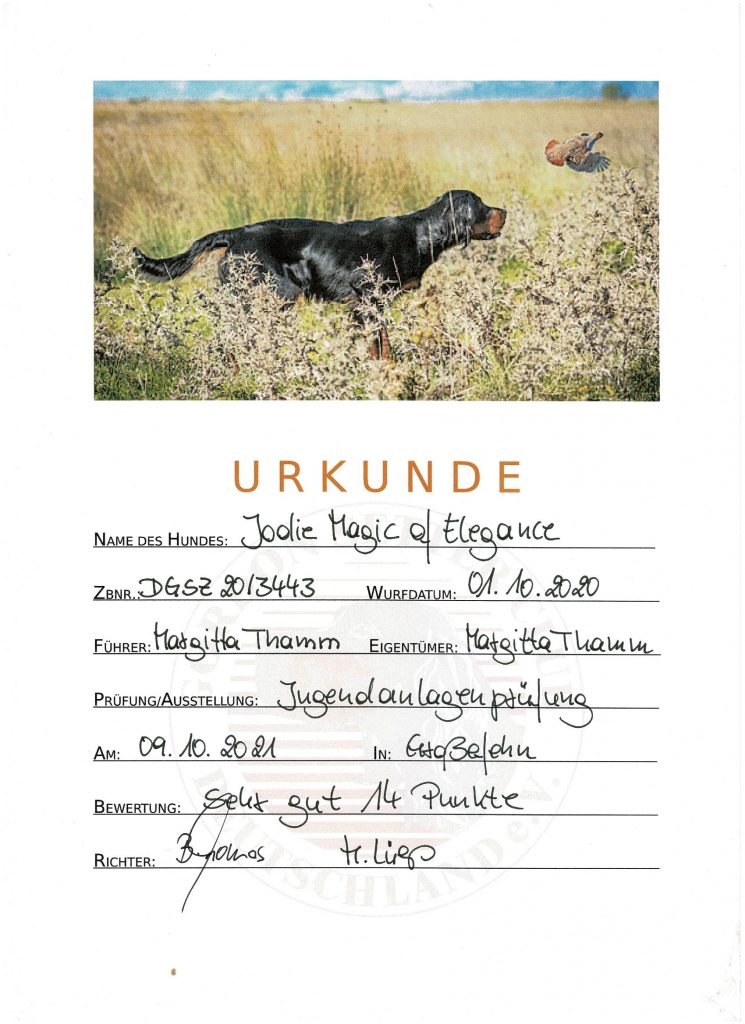 URKUNDE
NAME DES HUNDES: Jodie Magic of Elegance
ZBNR.: DGSZ 20/3443 WURFDATUM: 01.10.2020
FÜHRER: Margitta Thamm EIGENTÜMER: Margitta Thamm
PRÜFUNG/AUSSTELLUNG: Jugendanlagenprüfung
AM: 09.10.2021 IN: Großefehn
BEWERTUNG: Sehr gut 14 Punkte
RICHTER:
DEUTSCHLAND e.V.